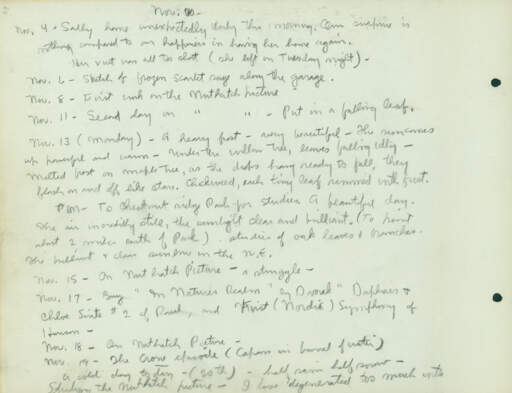 Nov.
Nov. 4 - Sally home unexpectedly early this morning. Our surprise is
nothing compared to our happiness in having her home again.
Her visit was all too short (she left on Tuesday night) -
Nov. 6 - Sketch of frozen scarlet sage along the garage.
Nov. 8 - First work on the Nuthatch picture
Nov. 11 - Second day on " " - Put in a falling leaf.
Nov. 13 (Monday) - A heavy frost - very beautiful - The sun comes
up powerful and warm - under the willow tree, leaves falling idly -
melted frost on maple tree, as the drops hang ready to fall, they
flash on and off like stars. Chickweed, each tiny leaf rimmed with frost.
P.M. - To Chestnut Ridge Park for studies. A beautiful day.
The air incredibly still, the sunlight clear and brilliant. (To haunt
about 2 miles south of Park). studies of oak leaves & branches.
The brilliant & clear sunshine in the N.E.
Nov. 15 - On Nuthatch Picture - a struggle -
Nov. 17 - Buy "In Nature's Realm" by Dvorak" Daphnis &
Chloe Suite #2 of Ravel, and First (Nordic) Symphony of
Hanson -
Nov. 18 - On Nuthatch Picture -
Nov. 19 - The Crow episode (Capons in barrel of water)
A cold day to-day - (20th) - half rain half snow -
the Nuthatch picture - I have degenerated too much into